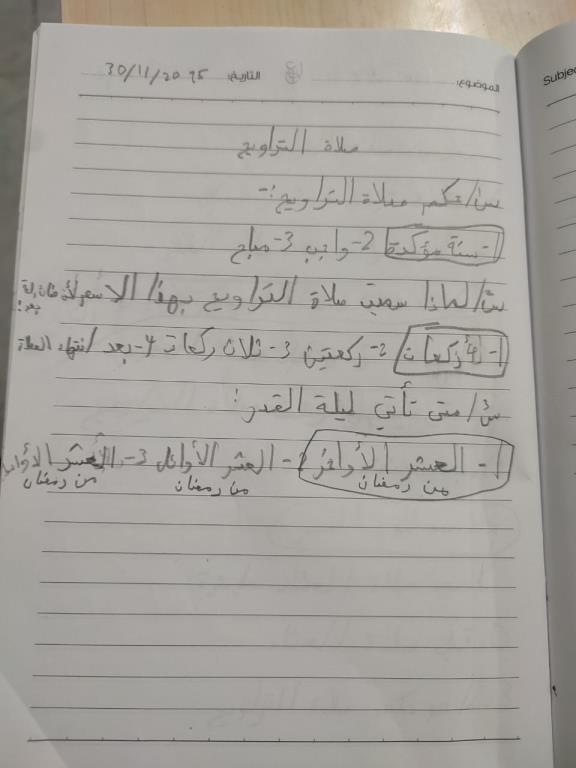 الموضوع: التاريخ: 30/11/2025
Subjec
صلاة التراويح
س1/حكم صلاة التراويح:-
1- سنة مؤكدة 2- واجب 3- مباح
س2/لماذا سميت صلاة التراويح بهذا الاسم لأن
بعد:
1- 4 ركعات 2- ركعتين 3- ثلاث ركعات 4- بعد انتهاء الصلاة
س3/متى تأتي ليلة القدر:
1- العشر الأواخر 2- العشر الأوائل 3- العشر
من رمضان من رمضان من رمضان